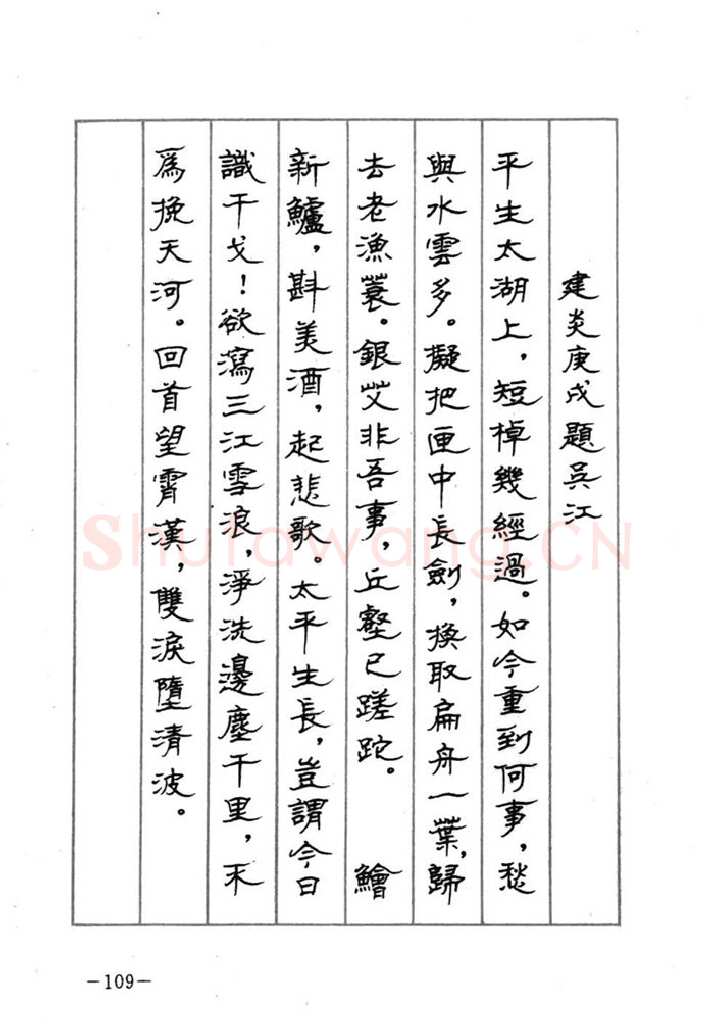 建炎庚戌題吳江
平生太湖上，短棹幾經過。如今重到何事，愁
與水雲多。擬把匣中長劍，換取扁舟一葉，歸
去老漁蓑。銀艾非吾事，丘壑已蹉跎。　鱠
新鱸，斟美酒，起悲歌。太平生長，豈謂今日
識干戈！欲瀉三江雪浪，淨洗邊塵千里，不
爲挽天河。回首望霄漢，雙淚墮清波。
Shufawang.CN
－109－